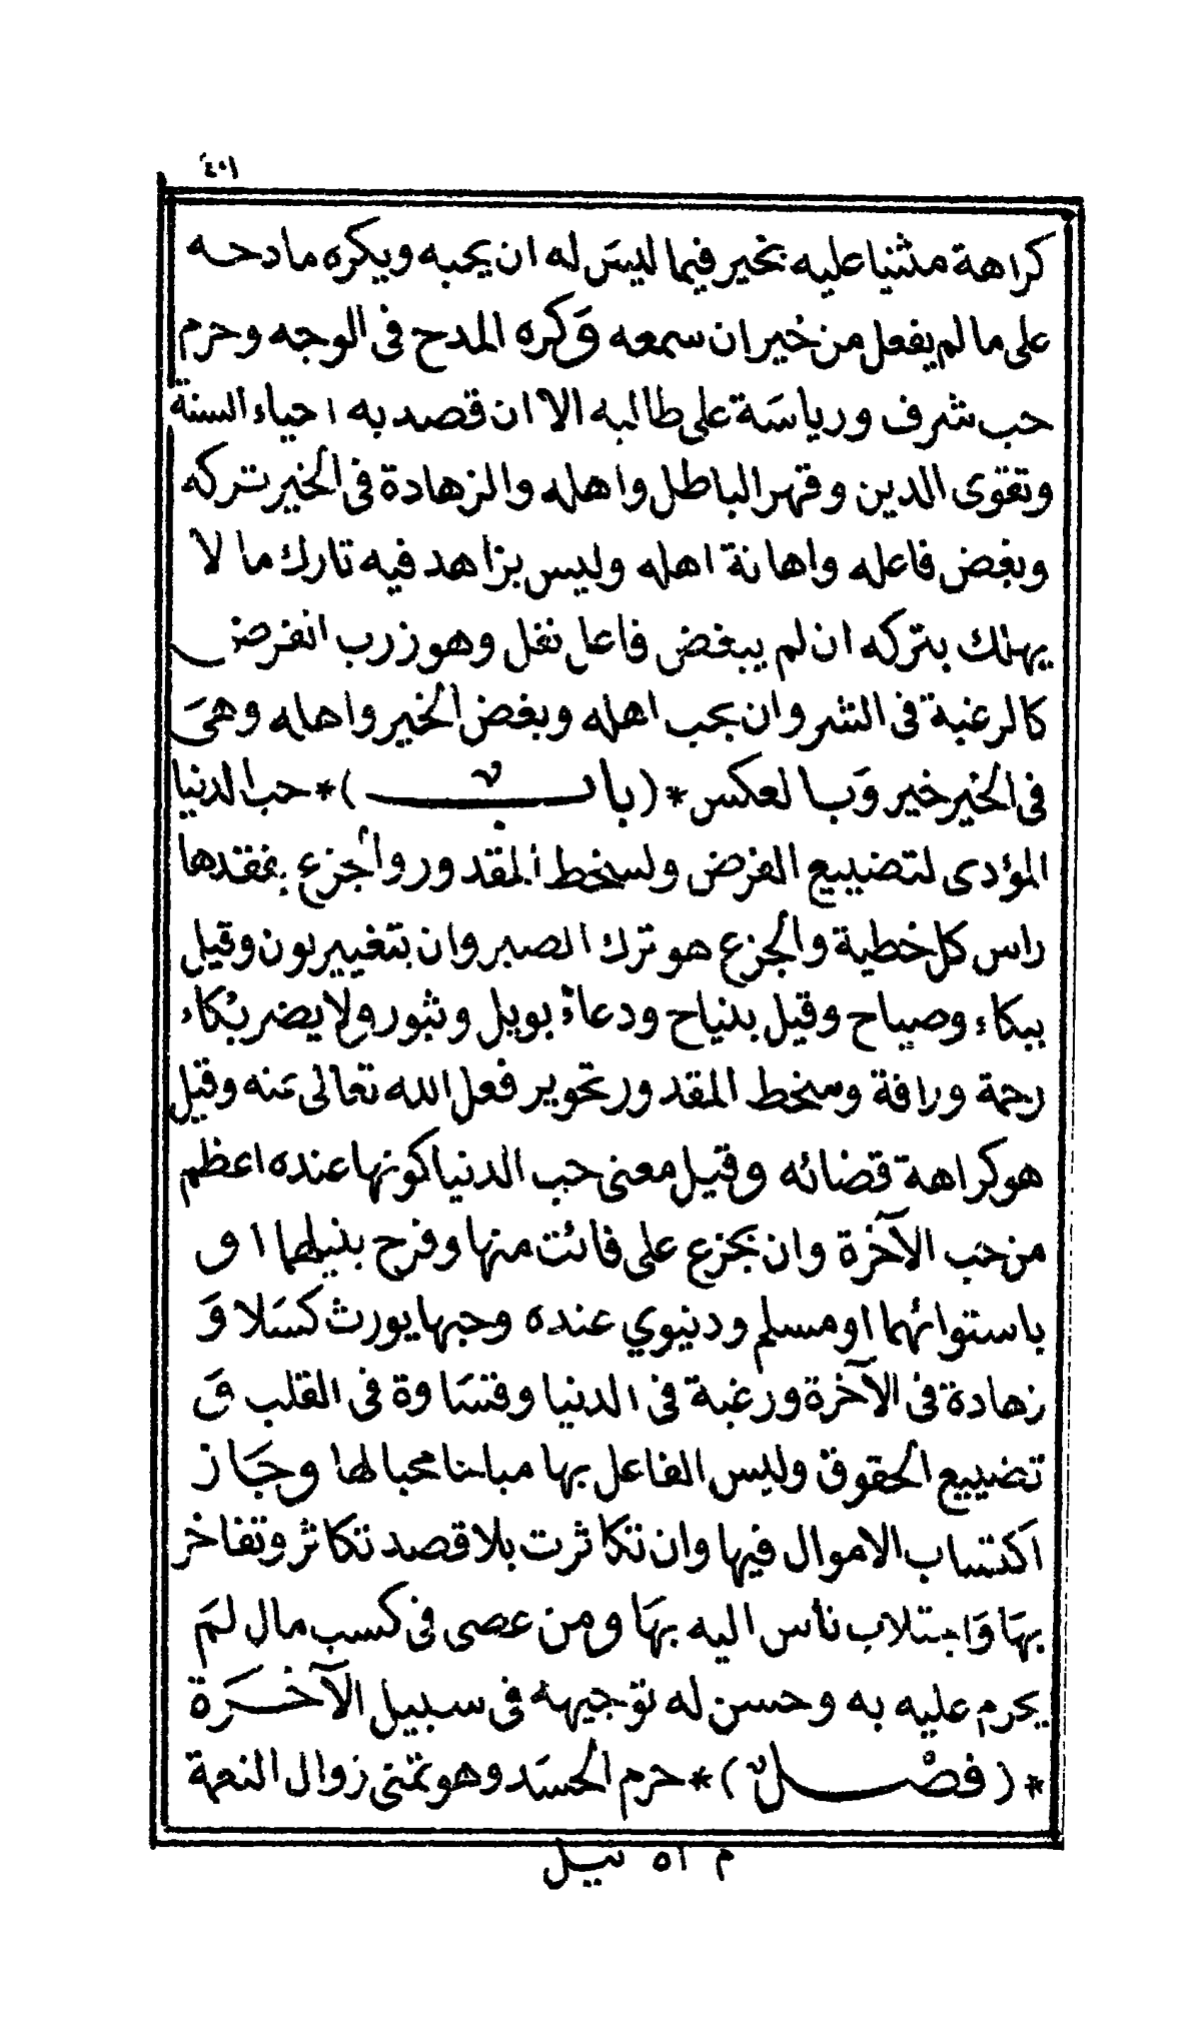 ٤٠١
كراهة مثنيا عليه بخير فيما ليس له ان يحبه ويكره مادحه
على ما لم يفعل من خير ان سمعه وكره المدح فى الوجه وحرم
حب شرف ورياسة على طالبه الا ان قصد به احياء السنة
وتقوى الدين وقهر الباطل واهله والزهادة فى الخير تركه
وبغض فاعله واهانة اهله وليس بزاهد فيه تارك ما لا
يهلك بتركه ان لم يبغض فاعل نفل وهو زرب الفرض
كالرغبة فى الشر وان بحب اهله وبغض الخير واهله وهى
فى الخير خير وبالعكس *(باب)* حب الدنيا
المؤدى لتضييع الفرض ولسخط المقدور والجزع بفقدها
راس كل خطية والجزع هو ترك الصبر وان بتغيير لون وقيل
ببكاء وصياح وقيل بنياح ودعاء بويل وثبور ولا يضر بكاء
رحمة ورافة وسخط المقدور تحوير فعل الله تعالى عنه وقيل
هو كراهة قضائه وقيل معنى حب الدنيا كونها عنده اعظم
من حب الآخرة وان بجزع على فائت منها وفرح بنيلها او
باستوائهما او مسلم ودنيوي عنده وحبها يورث كسلا و
زهادة فى الآخرة ورغبة فى الدنيا وقساوة فى القلب و
تضييع الحقوق وليس الفاعل بها مباحا محبا لها وجاز
اكتساب الاموال فيها وان تكاثرت بلا قصد تكاثر وتفاخر
بها واجتلاب ناس اليه بها ومن عصى فى كسب مال لم
يحرم عليه به وحسن له توجيهه فى سبيل الآخرة
*(فصل)* حرم الحسد وهو تمنى زوال النعمة
م ٥١ نيل